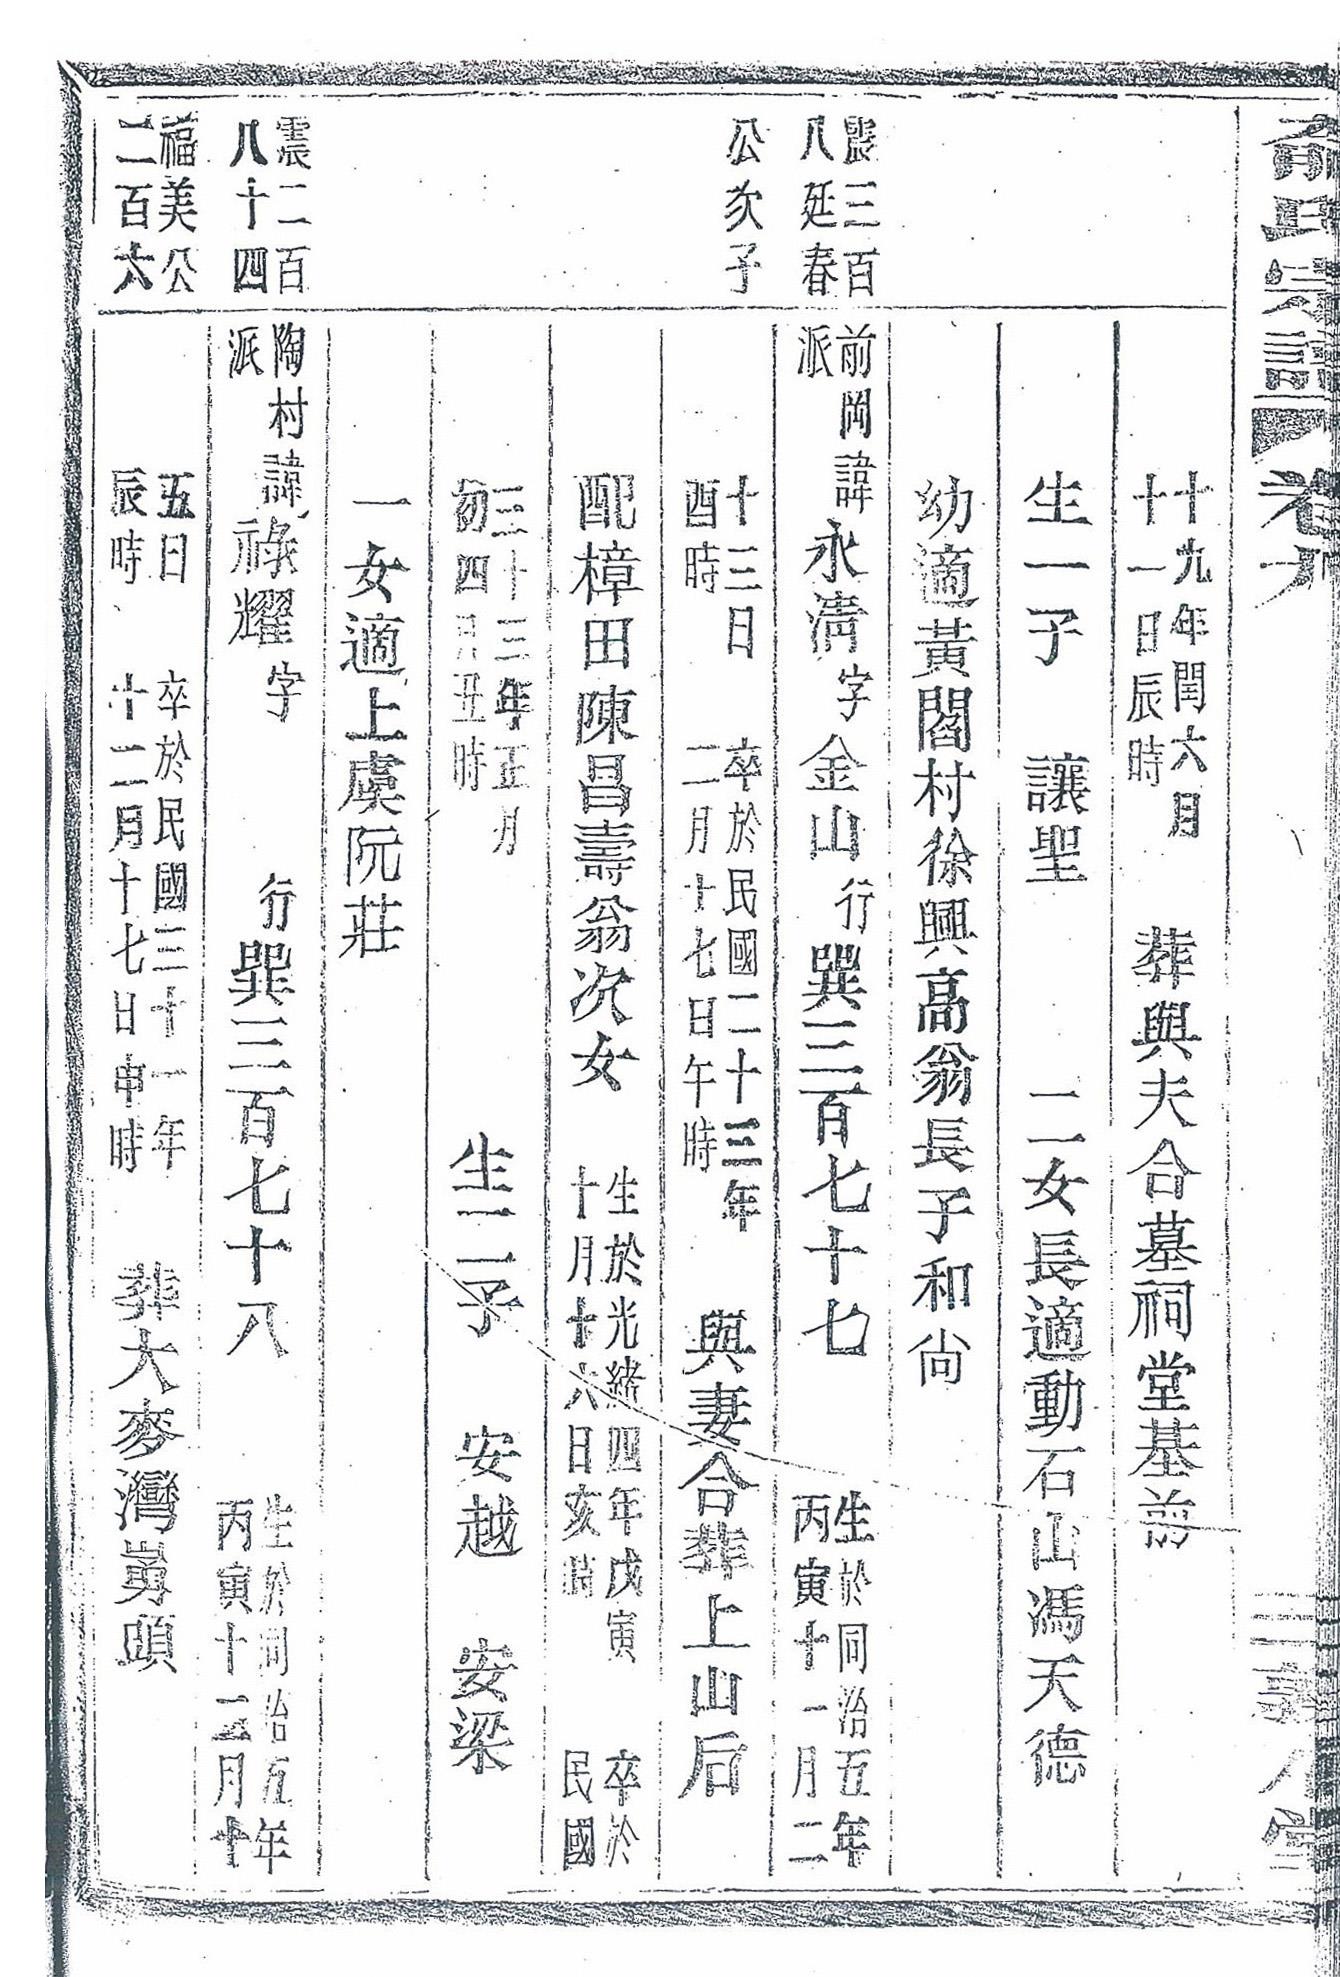 俞氏宗譜 卷九
十九年閏六月
十一日辰時
葬與夫合墓祠堂基前
生一子 讓聖 二女長適動石山馮天德
幼適黃閣村徐興高翁長子和尚
震三百
八延春
公次子
前岡
派
諱永淸字金山行巽三百七十七
生於同治五年
丙寅十一月二
十三日
酉時
卒於民國二十三年
二月十七日午時
與妻合葬上山后
配樟田陳昌壽翁次女
生於光緒四年戊寅
十月十六日亥時
卒於
民國
三十三年正月
初四月丑時
生二子 安越 安梁
一女適上虞阮莊
震二百
八十四
福美公
二百六
陶村
派
諱祿耀字 行巽三百七十八
生於同治五年
丙寅十二月十
五日
辰時
卒於民國三十一年
十二月十七日申時
葬大麥灣頭